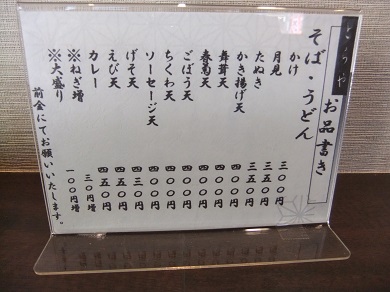 お品書き
そば・うどん
かけ 三〇〇円
月見 三五〇円
たぬき 三五〇円
かき揚げ天 四〇〇円
舞茸天 四〇〇円
春菊天 四〇〇円
ごぼう天 四〇〇円
ちくわ天 四〇〇円
ソーセージ天 四〇〇円
げそ天 四三〇円
えび天 四五〇円
カレー 四五〇円
※ねぎ増 三〇円増
※大盛り 一〇〇円増
前金にてお願いいたします。